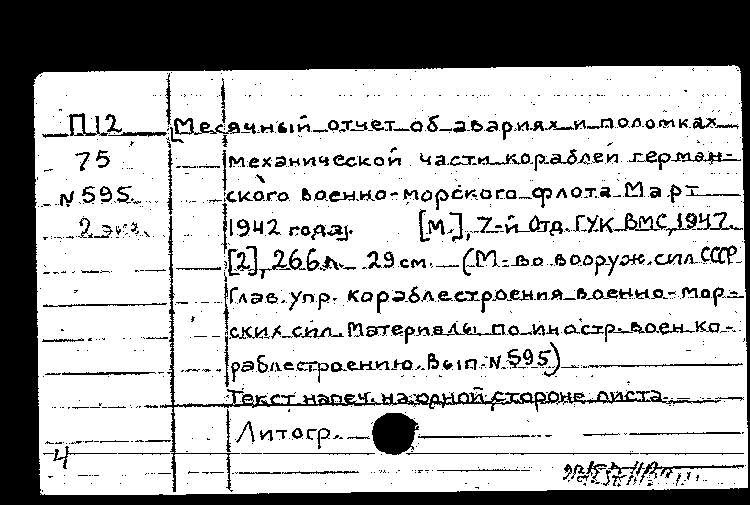 П12 Месячный отчет об авариях и поломках
75 механической части кораблей герман-
N 595. ского военно-морского флота Март
2 экз. 1942 года]. [М.], 7-й Отд. ГУК ВМС, 1947.
[2], 266 л. 29 см. (М-во вооруж. сил СССР
Глав. упр. кораблестроения военно-мор-
ских сил. Материалы по иностр. воен. ко-
раблестроению. Вып. N 595)
Текст напеч. на одной стороне листа
Литогр.
4